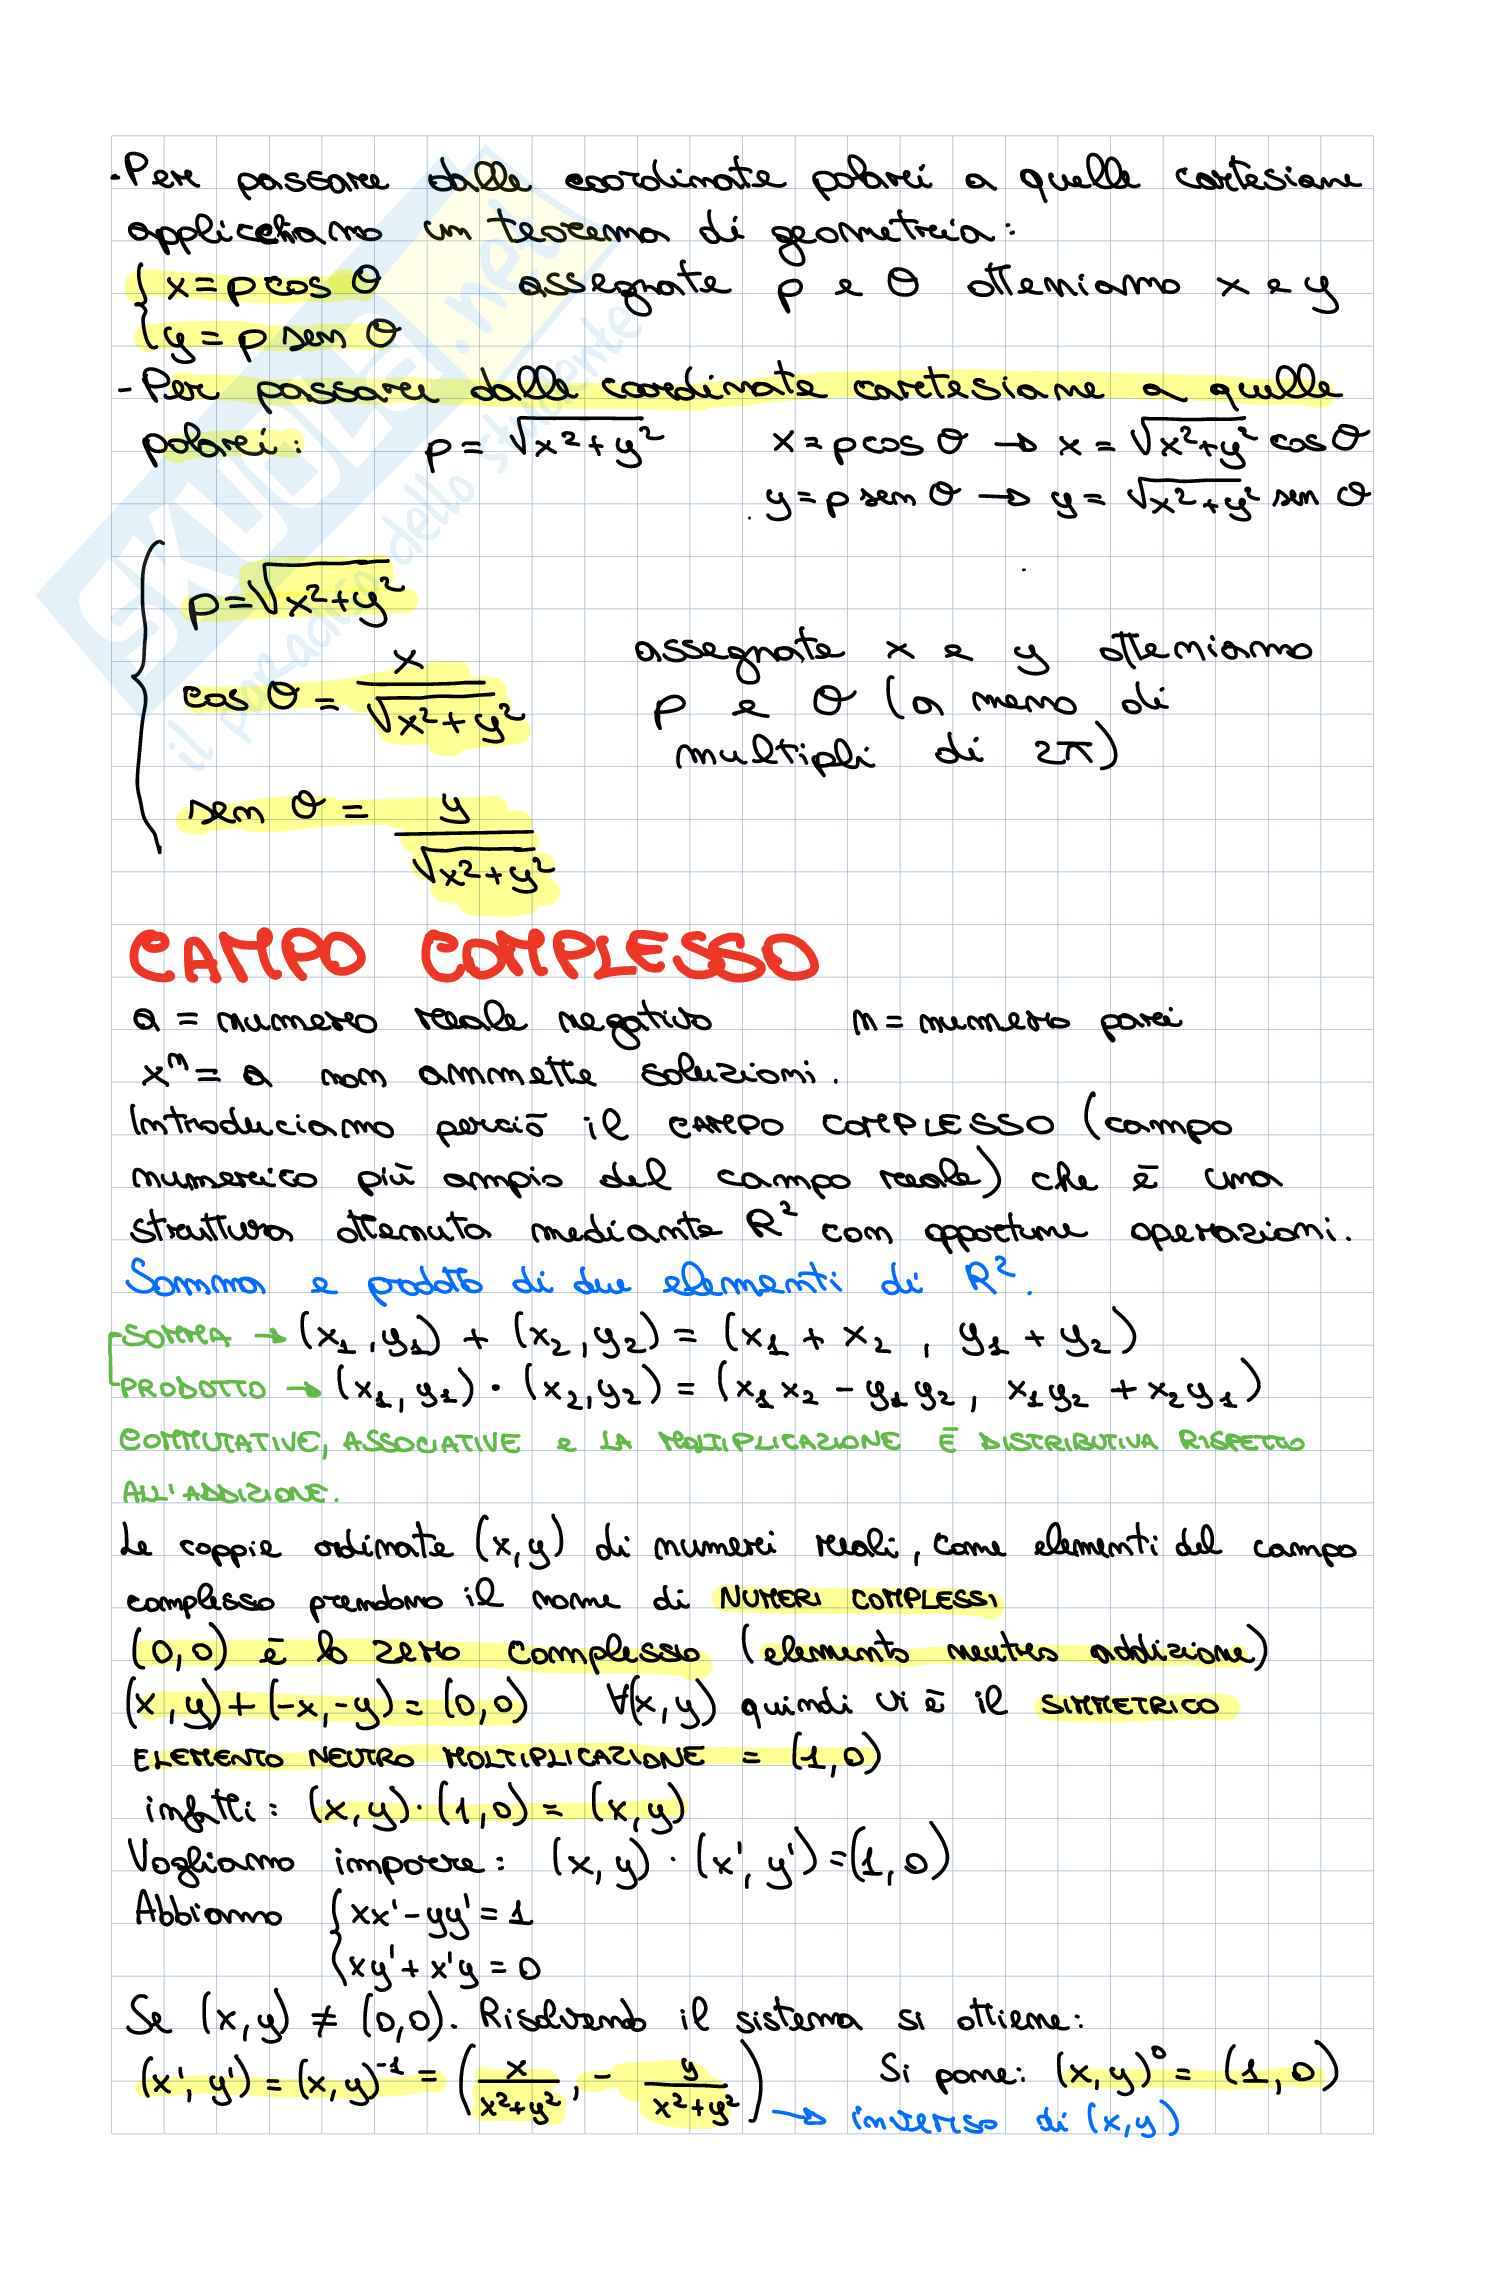 - Per passare dalle coordinate polari a quelle cartesiane
applichiamo un teorema di geometria:
{ x = ρ cos θ    assegnate ρ e θ otteniamo x e y
{ y = ρ sen θ
- Per passare dalle coordinate cartesiane a quelle
polari:    ρ = √(x²+y²)    x = ρ cos θ → x = √(x²+y²) cos θ
y = ρ sen θ → y = √(x²+y²) sen θ
{ ρ = √(x²+y²)
cos θ = x/√(x²+y²)    assegnate x e y otteniamo
ρ e θ (a meno di
multipli di 2π)
sen θ = y/√(x²+y²)
CAMPO COMPLESSO
a = numero reale negativo    n = numero pari
xⁿ = a non ammette soluzioni.
Introduciamo perciò il CAMPO COMPLESSO (campo
numerico più ampio del campo reale) che è una
struttura ottenuta mediante R² con opportune operazioni.
Somma e prodotto di due elementi di R².
SOMMA → (x₁, y₁) + (x₂, y₂) = (x₁ + x₂ , y₁ + y₂)
PRODOTTO → (x₁, y₁) · (x₂, y₂) = (x₁x₂ - y₁y₂, x₁y₂ + x₂y₁)
COMMUTATIVE, ASSOCIATIVE e LA MOLTIPLICAZIONE È DISTRIBUTIVA RISPETTO
ALL'ADDIZIONE.
Le coppie ordinate (x, y) di numeri reali, come elementi del campo
complesso prendono il nome di NUMERI COMPLESSI
(0,0) è lo zero complesso (elemento neutro addizione)
(x, y) + (-x, -y) = (0,0)    ∀(x, y) quindi vi è il SIMMETRICO
ELEMENTO NEUTRO MOLTIPLICAZIONE = (1,0)
infatti: (x, y) · (1, 0) = (x, y)
Vogliamo imporre: (x, y) · (x', y') = (1, 0)
Abbiamo { xx' - yy' = 1
{ xy' + x'y = 0
Se (x, y) ≠ (0,0). Risolvendo il sistema si ottiene:
(x', y') = (x, y)⁻¹ = (x/(x²+y²), - y/(x²+y²))    Si pone: (x, y)⁰ = (1, 0)
→ inverso di (x, y)
SKUOLA.net
il paradiso dello studente